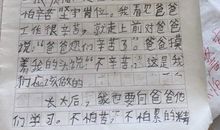 怕辛苦坚守岗位。我看见爸爸
工作很辛苦,就走上前对爸爸
说"爸爸您们辛苦了。"爸爸摸
着我的头说"不辛苦,这是我
们应该做的
长大后,我也要向爸爸他
们学习。不怕苦,不怕累的精